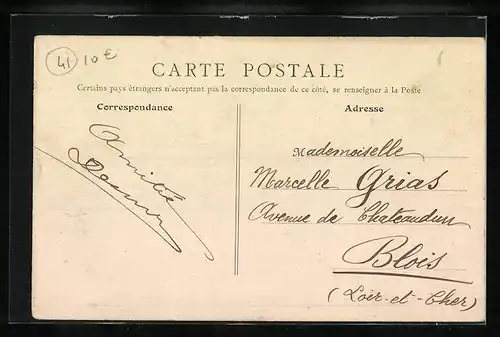 41 10€
CARTE POSTALE
Certains pays étrangers n'acceptant pas la correspondance de ce côté, se renseigner à la Poste
Correspondance
Adresse
Amitié
Mademoiselle
Marcelle Grias
Avenue de Chateaudun
Blois
(Loir-et-Cher)